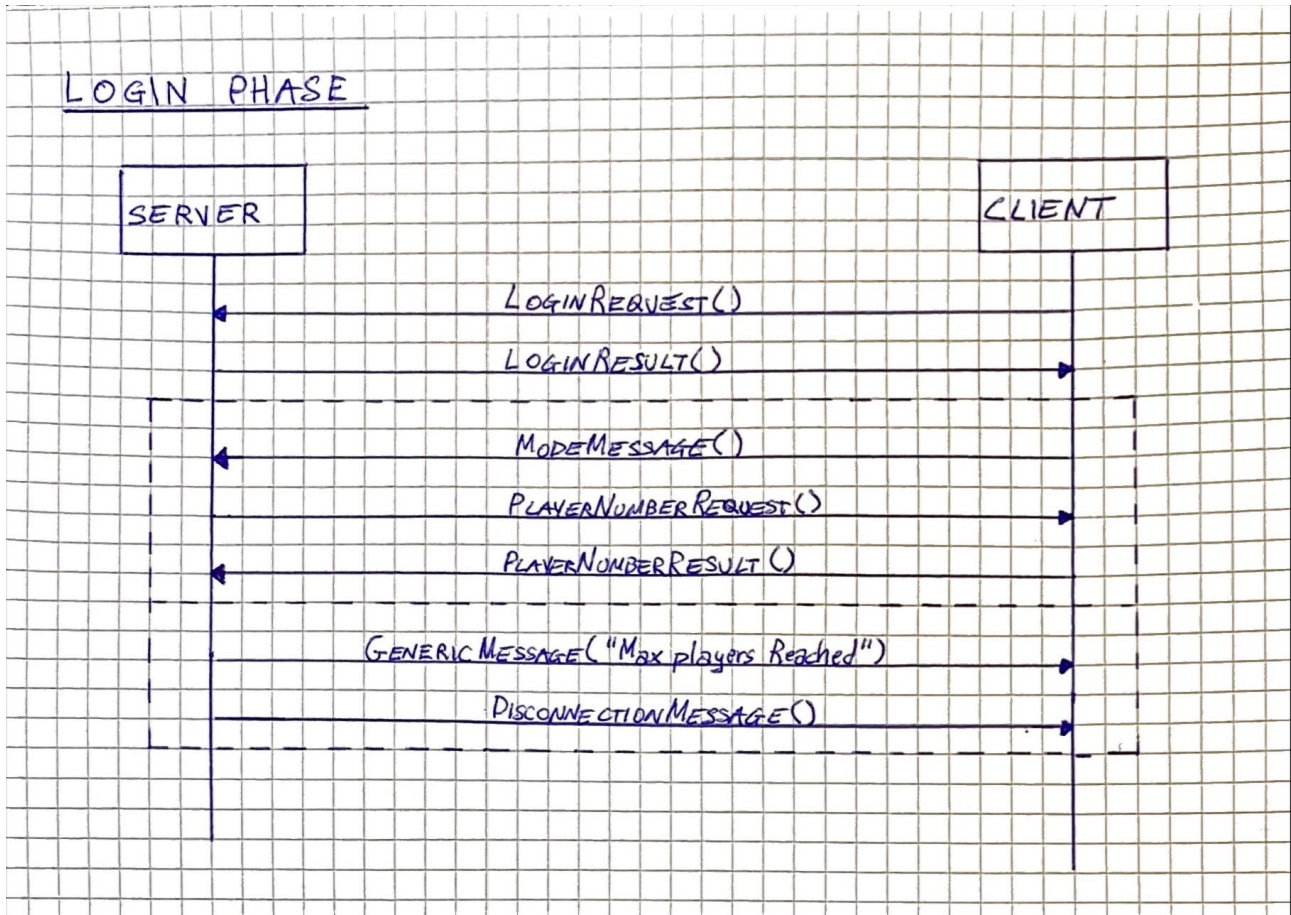 LOGIN PHASE
SERVER
CLIENT
LOGINREQUEST()
LOGINRESULT()
MODEMESSAGE()
PLAYERNUMBERREQUEST()
PLAYERNUMBERRESULT()
GENERICMESSAGE("Max players Reached")
DISCONNECTIONMESSAGE()